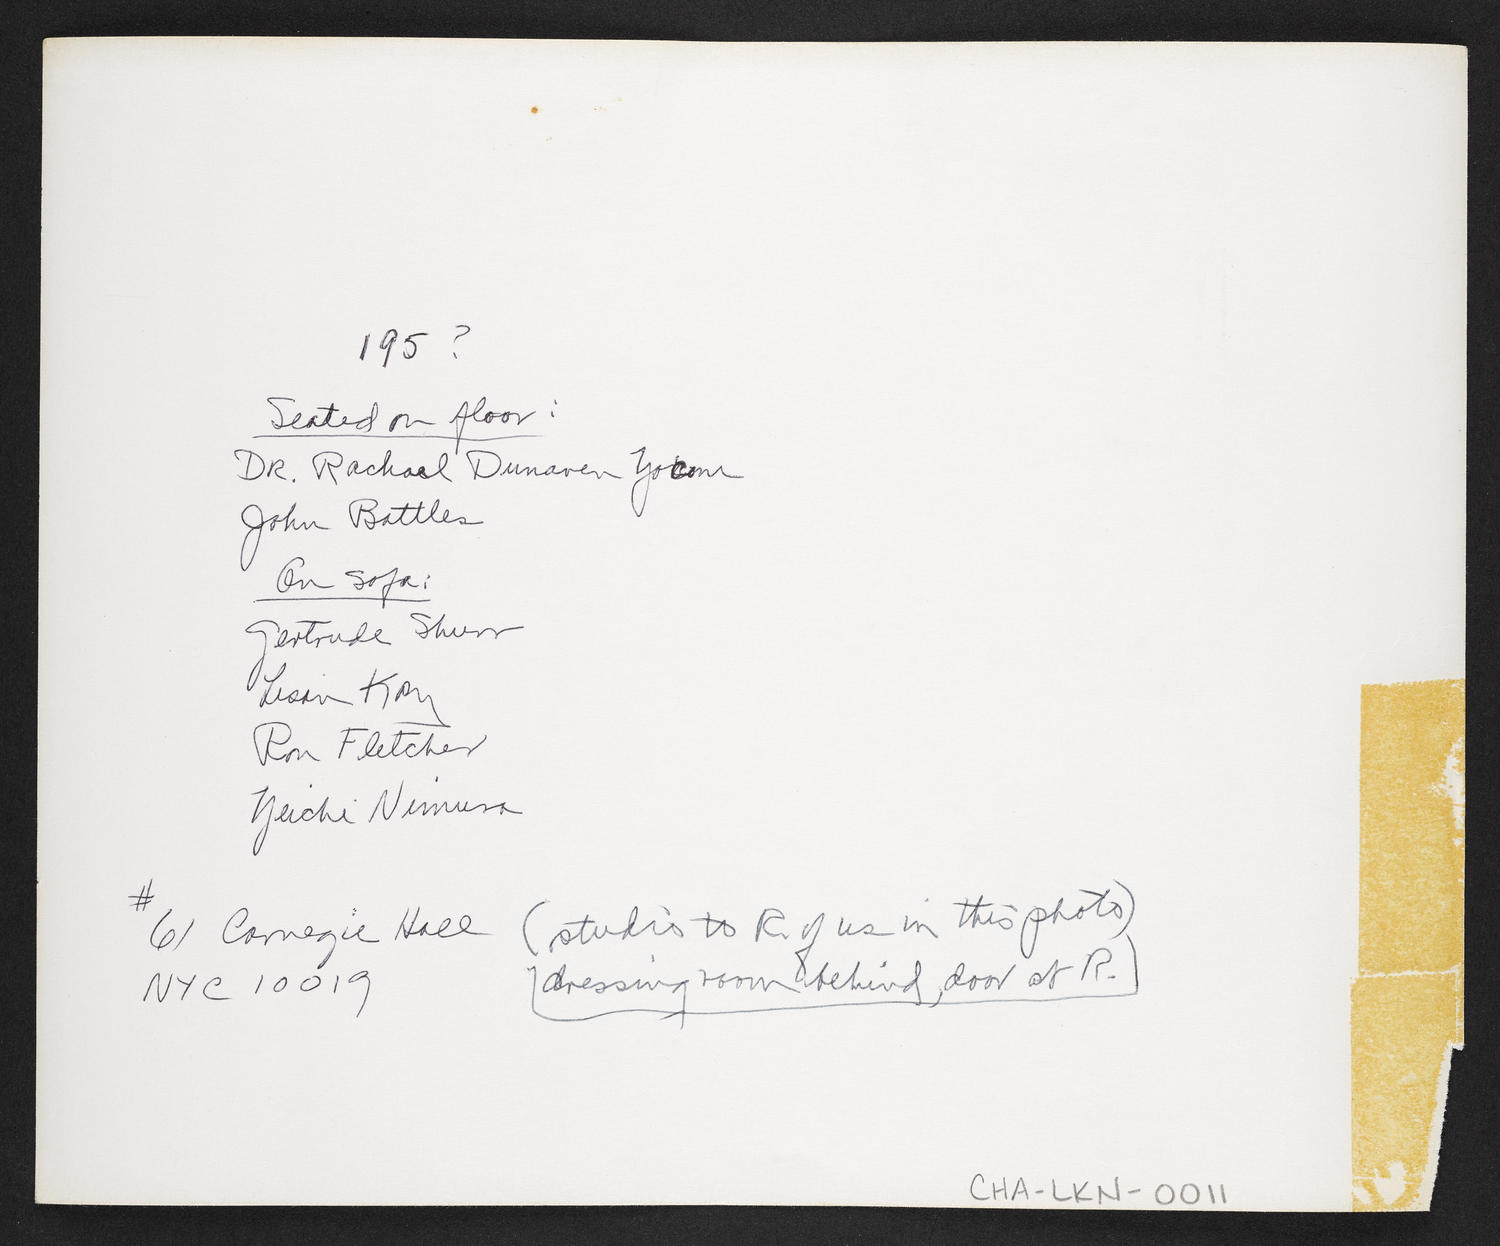 195?
Seated on floor:
DR. Rachael Dunaven Yocom
John Battles
On sofa:
Gertrude Shurr
Lisan Kay
Ron Fletcher
Yeichi Nimura
#61 Carnegie Hall (studio to R. of us in this photo)
NYC 10019 [dressing room behind, door at R.]
CHA-LKN-0011